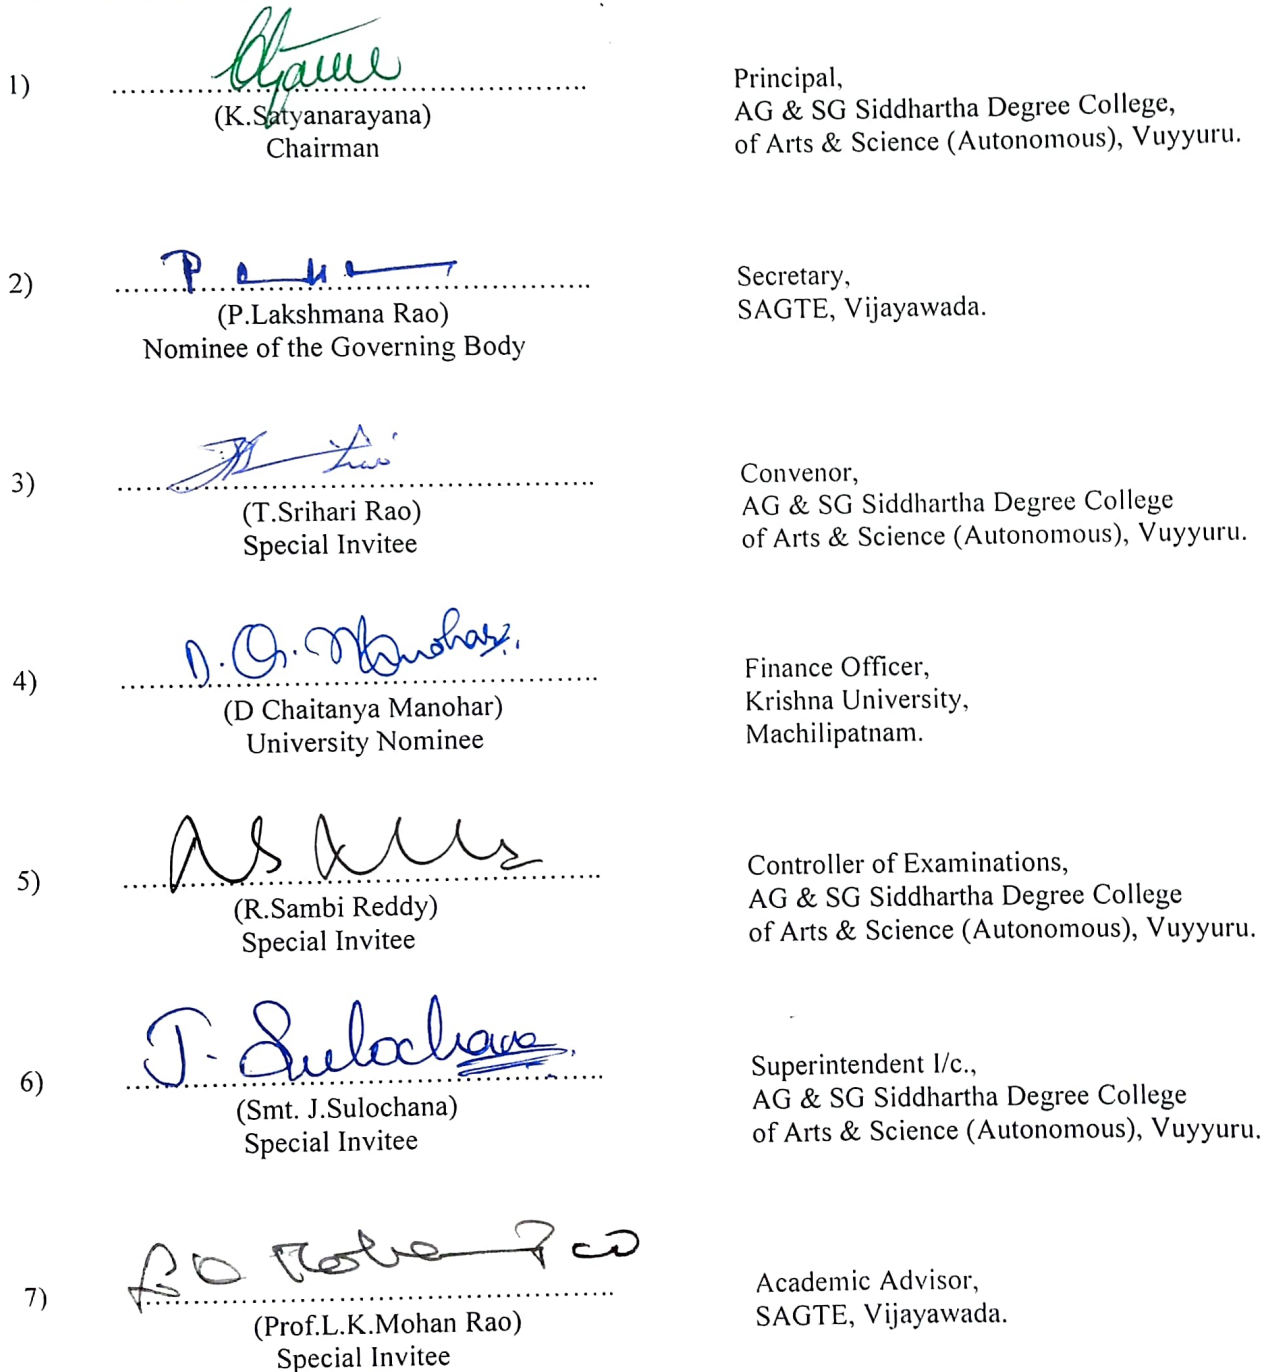 1)
(K.Satyanarayana)
Chairman
Principal,
AG & SG Siddhartha Degree College,
of Arts & Science (Autonomous), Vuyyuru.
2)
P
(P.Lakshmana Rao)
Nominee of the Governing Body
Secretary,
SAGTE, Vijayawada.
3)
(T.Srihari Rao)
Special Invitee
Convenor,
AG & SG Siddhartha Degree College
of Arts & Science (Autonomous), Vuyyuru.
4)
D. Ch. Manohar
(D Chaitanya Manohar)
University Nominee
Finance Officer,
Krishna University,
Machilipatnam.
5)
(R.Sambi Reddy)
Special Invitee
Controller of Examinations,
AG & SG Siddhartha Degree College
of Arts & Science (Autonomous), Vuyyuru.
6)
J. Sulochana
(Smt. J.Sulochana)
Special Invitee
Superintendent I/c.,
AG & SG Siddhartha Degree College
of Arts & Science (Autonomous), Vuyyuru.
7)
(Prof.L.K.Mohan Rao)
Special Invitee
Academic Advisor,
SAGTE, Vijayawada.